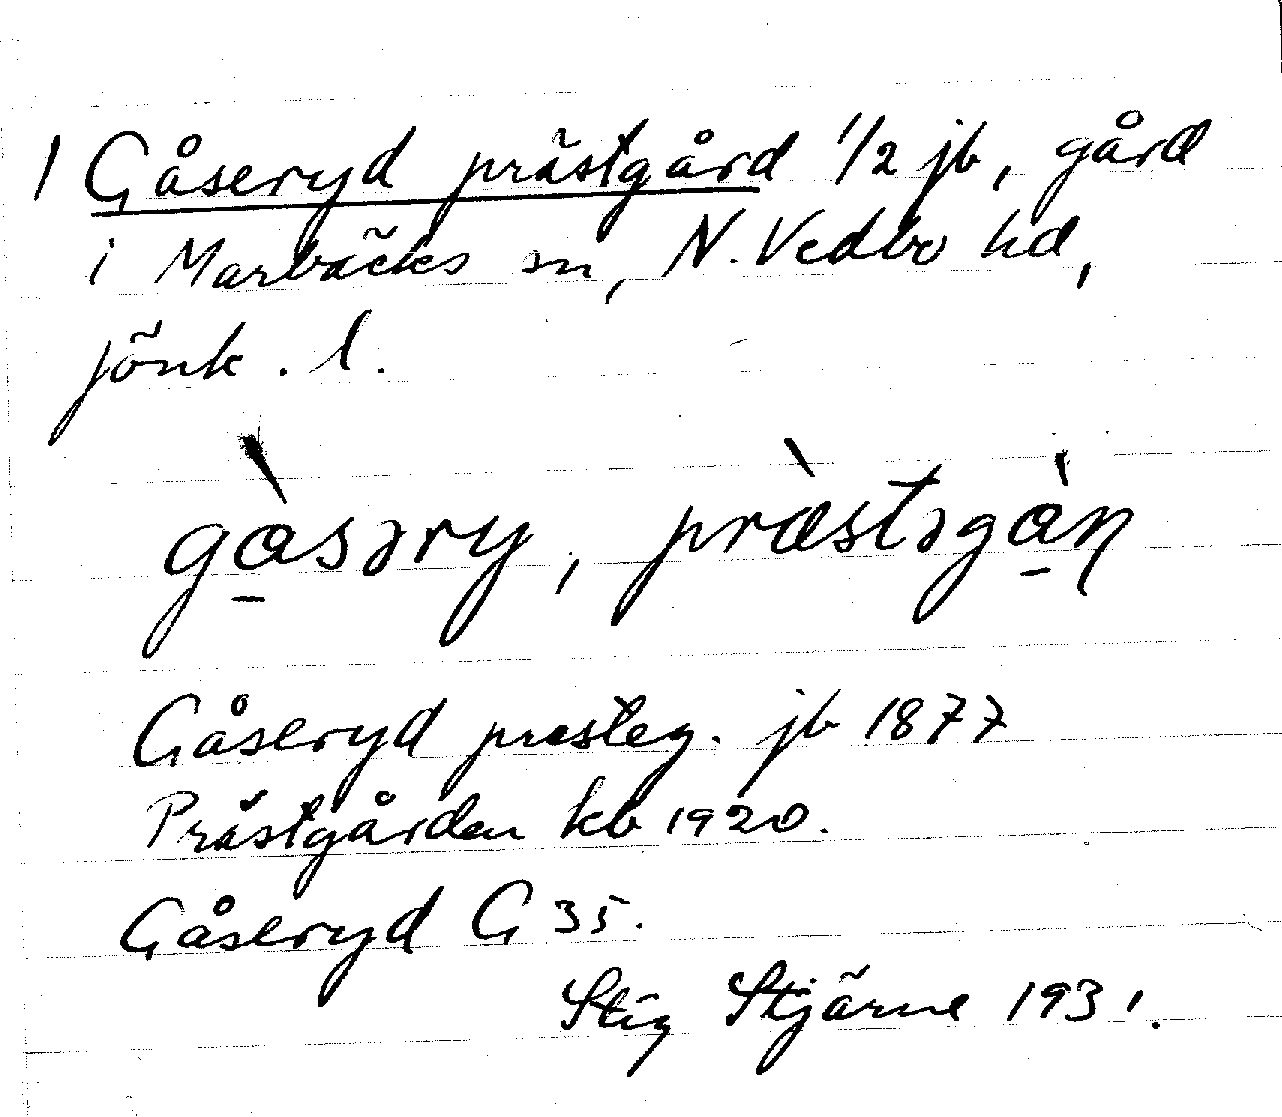 1 Gåseryd prästgård 1/2 jb, gård
i Marbäcks sn, N. Vedbo hd,
Jönk. l.
gàsəry, præ̀stəgàn̩
Gåseryd presteg. jb 1877
Prästgården kb 1920.
Gåseryd G 35.
Stig Stjärne 1931.